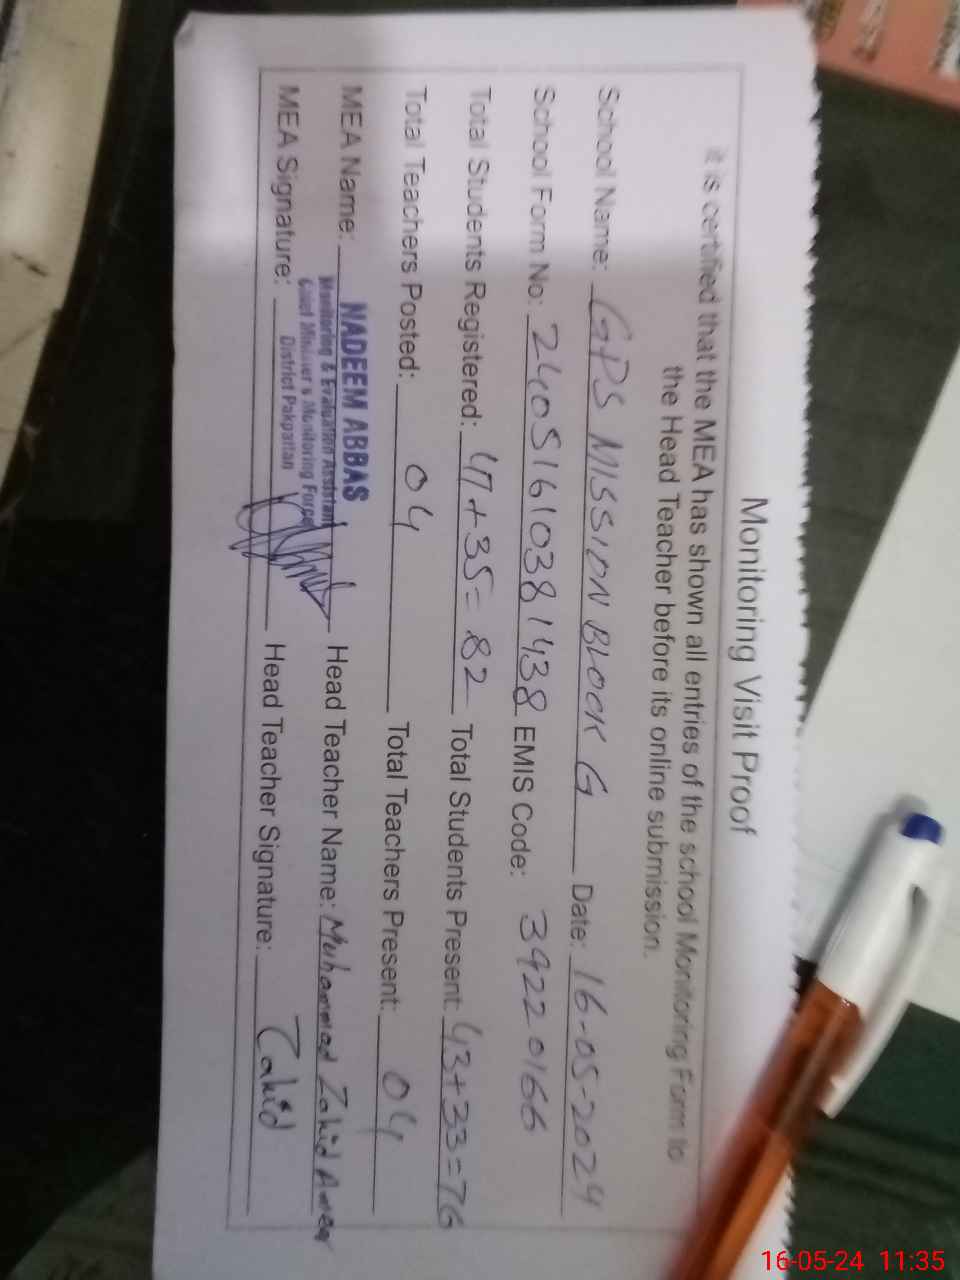 Monitoring Visit Proof
it is certified that the MEA has shown all entries of the school Monitoring Form to
the Head Teacher before its online submission.
School Name: GPS MISSION BLOCK G Date: 16-05-2024
School Form No: 24051610381438 EMIS Code: 39220166
Total Students Registered: 47+35=82 Total Students Present: 43+33=76
Total Teachers Posted: 04 Total Teachers Present: 04
MEA Name: NADEEM ABBAS Head Teacher Name: Muhammad Zahid
Monitoring & Evaluation Assistant
Chief Minister's Monitoring Force
District Pakpattan
MEA Signature: Head Teacher Signature: Zahid
16-05-24 11:35